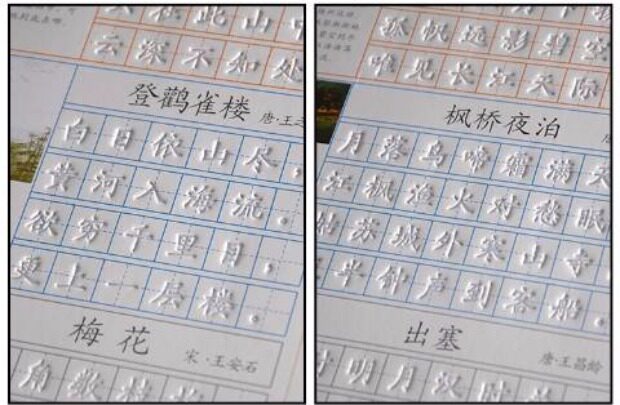 在此山中
云深不知处
登鹳雀楼 唐·王之
白日依山尽，
黄河入海流。
欲穷千里目，
更上一层楼。
梅花
宋·王安石
角数枝
孤帆远影碧空
唯见长江天际
枫桥夜泊
月落乌啼霜满天
江枫渔火对愁眠
姑苏城外寒山寺，
半钟声到客船。
出塞
唐·王昌龄
时明月汉时